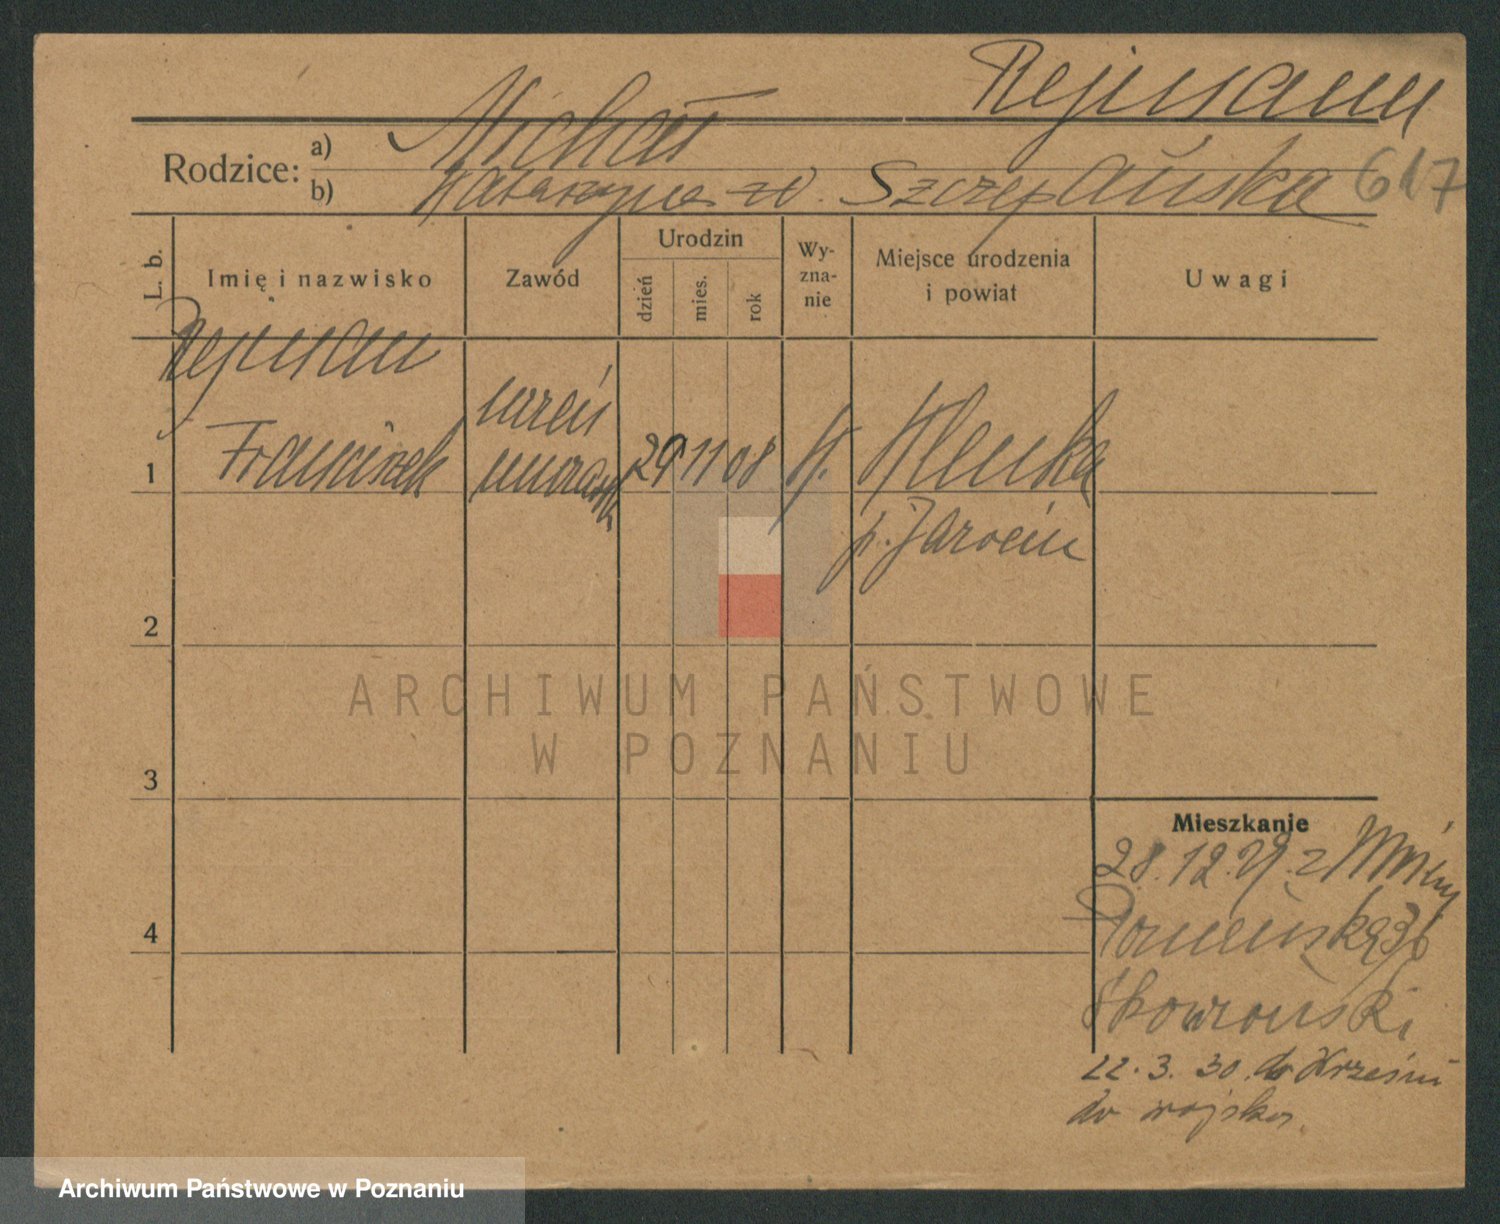 Rejmann
Rodzice: a) Michał
b) Katarzyna zd. Szczepańska 617
L. b.
Imię i nazwisko
Zawód
Urodzin
dzień
mies.
rok
Wy-
zna-
nie
Miejsce urodzenia
i powiat
Uwagi
Rejman
uczeń
1 Franciszek 29 11 08 Klenka
p. Jarocin
2
3
4
Mieszkanie
28.12.29. z
36
Skowroński
22.3.30. do
do wojska.
ARCHIWUM PAŃSTWOWE
W POZNANIU
Archiwum Państwowe w Poznaniu